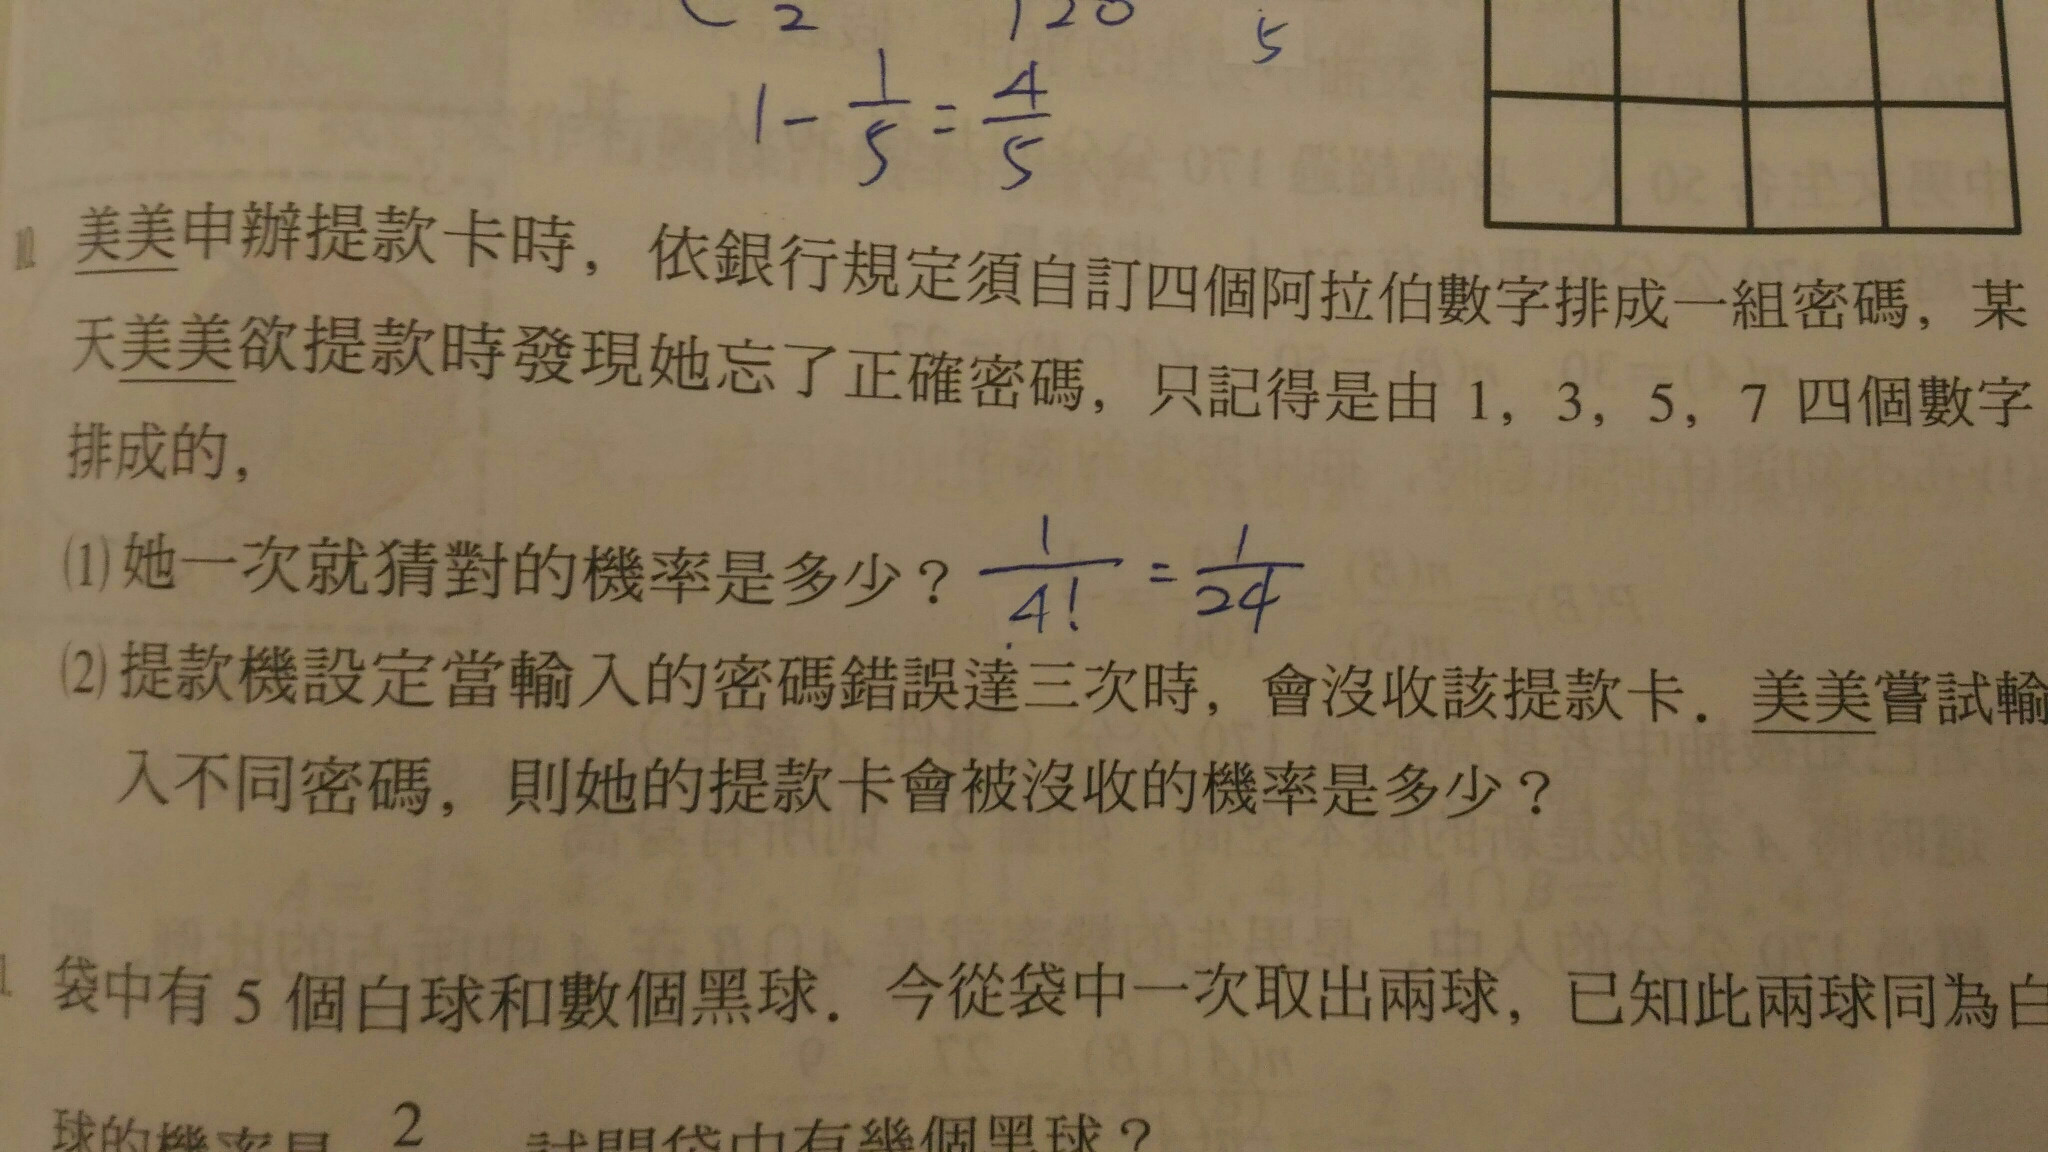 2 120 5
1 - 1/5 = 4/5
美美申辦提款卡時，依銀行規定須自訂四個阿拉伯數字排成一組密碼，某
天美美欲提款時發現她忘了正確密碼，只記得是由 1，3，5，7 四個數字
排成的，
(1)她一次就猜對的機率是多少？ 1/4! = 1/24
(2)提款機設定當輸入的密碼錯誤達三次時，會沒收該提款卡．美美嘗試輸
入不同密碼，則她的提款卡會被沒收的機率是多少？
袋中有 5 個白球和數個黑球．今從袋中一次取出兩球，已知此兩球同為白
球的機率是 2 試問袋中有幾個黑球？